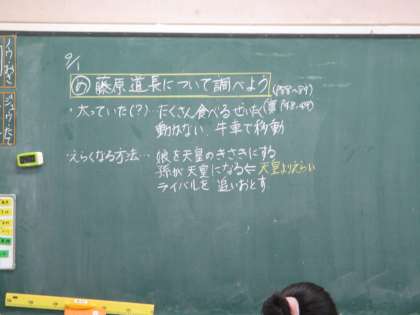 9/1
め 藤原道長について調べよう
・太っていた(?) たくさん食べる ぜいたく
動かない 牛車で移動
・えらくなる方法… 娘を天皇のきさきにする
孫が天皇になる ⇐ 天皇よりえらい
ライバルを追いおとす